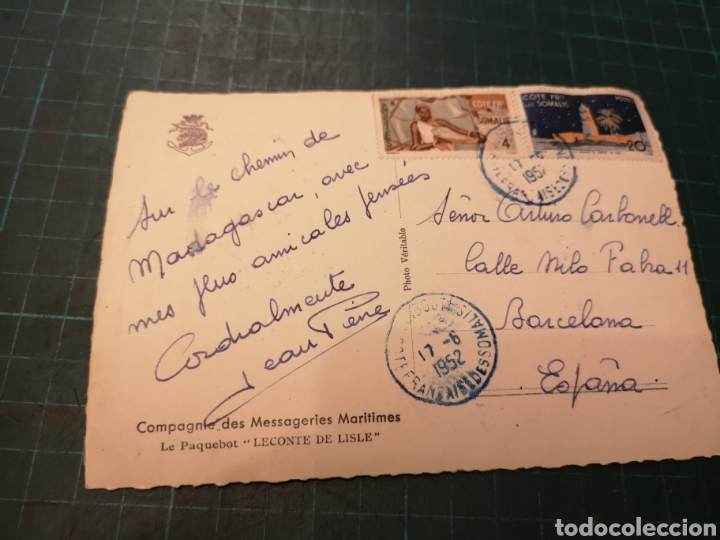 Sur le chemin de
Madagascar, avec
mes plus amicales pensées
Cordialmente
Jean Pène
Compagnie des Messageries Maritimes
Le Paquebot "LECONTE DE LISLE"
Photo Véritable
COTE FRse
DES SOMALIS
4
COTE FRse
DES SOMALIS
POSTES
20
17 - 6
1952
17 - 6
1952
COTE FRANÇAISE DES SOMALIS
Señor Arturo Carbonell
Calle Milo Fabra 11
Barcelona
España
todocoleccion.net